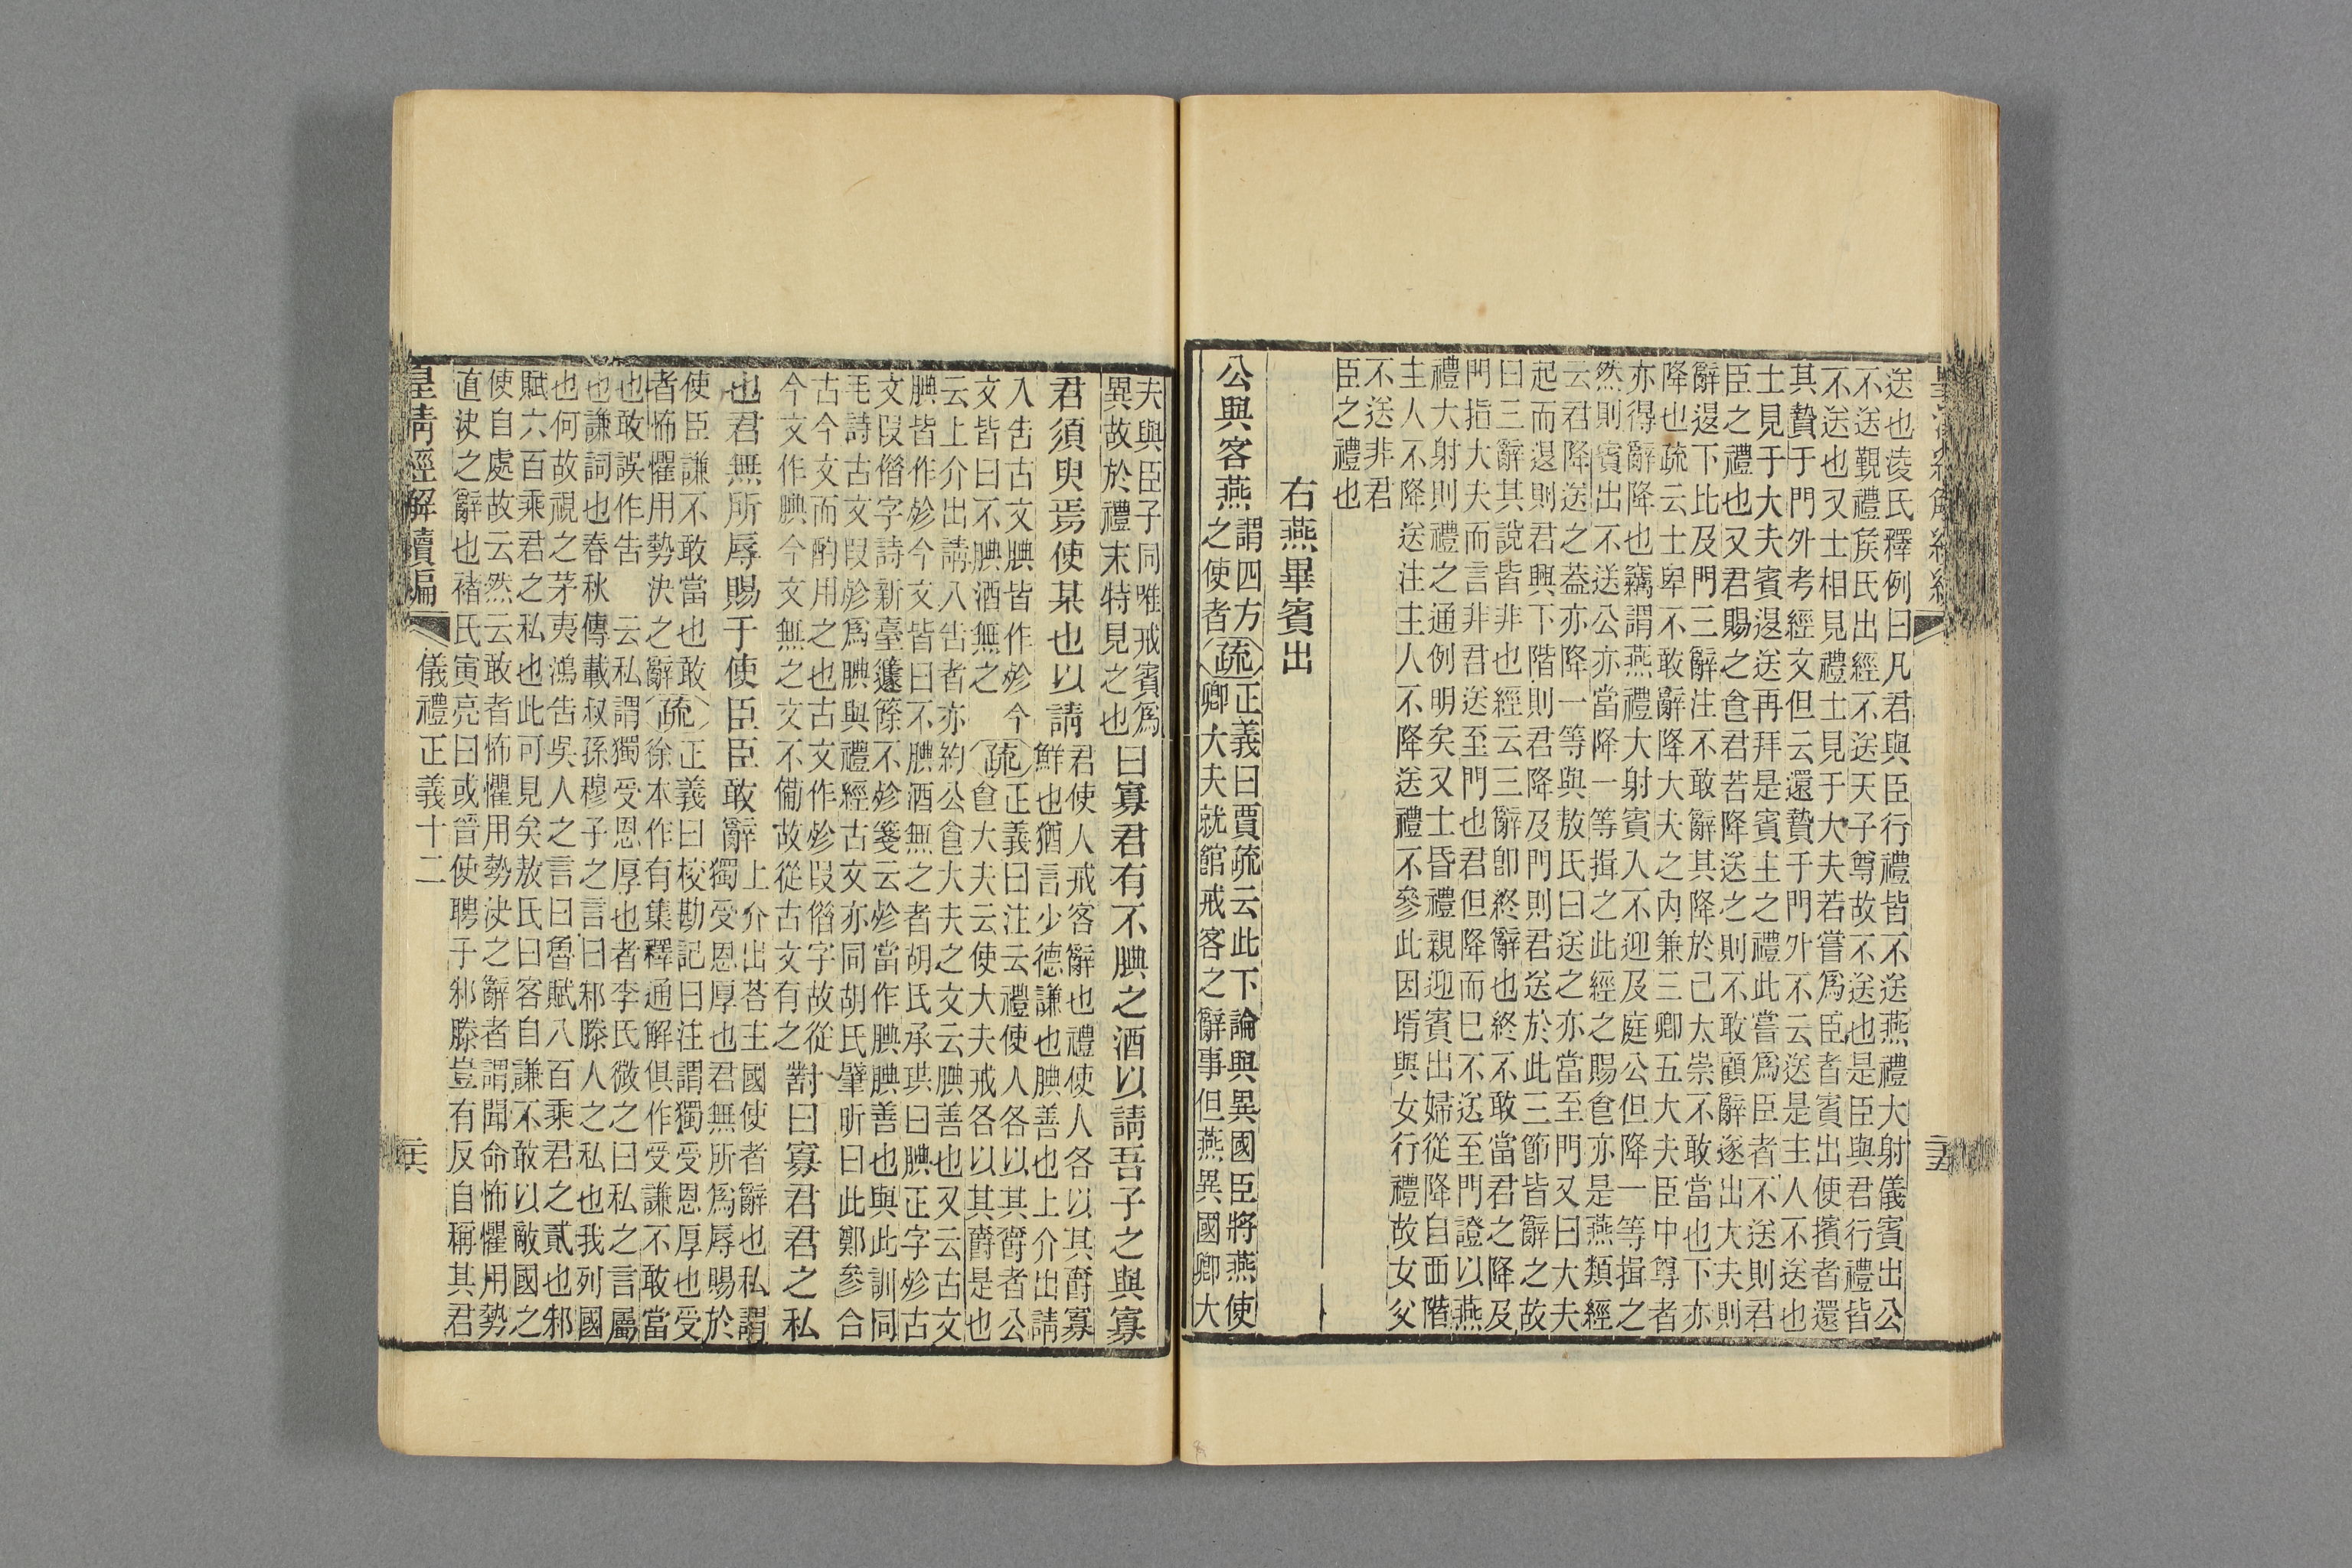 送也淩氏釋例曰凡君與臣行禮皆不送燕禮大射儀賓出公
不送覲禮矦氏出經不送天子尊故不送也是臣與君行禮皆
不送也又士相見禮士見于大夫若嘗爲臣者賓出使擯者還
其贄于門外考經文但云還贄于門外不云送是主人不送也
士見于大夫賓退送再拜是賓主之禮此嘗爲臣者不送則君
臣之禮也又君賜之食君若降送之則不敢顧辭遂出大夫則
辭退下比及門三辭注不敢辭其降於己太崇不敢當也下亦
降也疏云士卑不敢辭降大夫之內兼三卿五大夫臣中尊者
亦得辭降也竊謂燕禮大射賓入不迎及庭公但降一等揖之
然則賓出不送公亦當降一等揖之此經之賜食亦是燕類經
云君降送之葢亦降一等與敖氏曰送之亦當至門又曰大夫
起而退則君興下階則君降及門則君送於此三節皆辭之故
曰三辭其說皆非也經云三辭卽終辭也終不敢當君之降及
門指大夫而言非君送至門也君但降而巳不送至門證以燕
禮大射則禮之通例明矣又士昏禮親迎賓出婦從降自西階
主人不降送注主人不降送禮不參此因壻與女行禮故女父
不送非君
臣之禮也
右燕畢賓出
公與客燕謂四方之使者疏正義曰賈疏云此下論與異國臣將燕使卿大夫就館戒客之辭事但燕異國卿大
夫與臣子同唯戒賓爲異故於禮末特見之也曰寡君有不腆之酒以請吾子之與寡
君須臾焉使某也以請君使人戒客辭也禮使人各以其爵寡鮮也猶言少德謙也腆善也上介出請
入告古文腆皆作殄今文皆曰不腆酒無之疏正義曰注云禮使人各以其爵者公食大夫云使大夫戒各以其爵是也
云上介出請入告者亦約公食大夫之文云腆善也又云古文
腆皆作殄今文皆曰不腆酒無之者胡氏承珙曰腆正字殄古
文叚僭字詩新臺籧篨不殄箋云殄當作腆腆善也與此訓同
毛詩古文叚殄爲腆與禮經古文亦同胡氏肇昕曰此鄭參合
古今文而酌用之也古文作殄叚僭字故從
今文作腆今文無之文不備故從古文有之對曰寡君君之私
也君無所辱賜于使臣臣敢辭上介出荅主國使者辭也私謂獨受恩厚也君無所爲辱賜於
使臣謙不敢當也敢者怖懼用勢決之辭疏正義曰校勘記曰注謂獨受恩厚也受徐本作有集釋通解俱作受謙不敢當
也敢誤作告　云私謂獨受恩厚也者李氏微之曰私之言屬
也謙詞也春秋傳載叔孫穆子之言曰邾滕人之私也我列國
也何故視之茅夷鴻告吳人之言曰魯賦八百乘君之貳也邾
賦六百乘君之私也此可見矣敖氏曰客自謙不敢以敵國之
使自處故云然云敢者怖懼用勢決之辭者謂聞命怖懼用勢
直決之辭也褚氏寅亮曰或晉使聘于邾滕豈有反自稱其君
皇清經解續編　儀禮正義十二